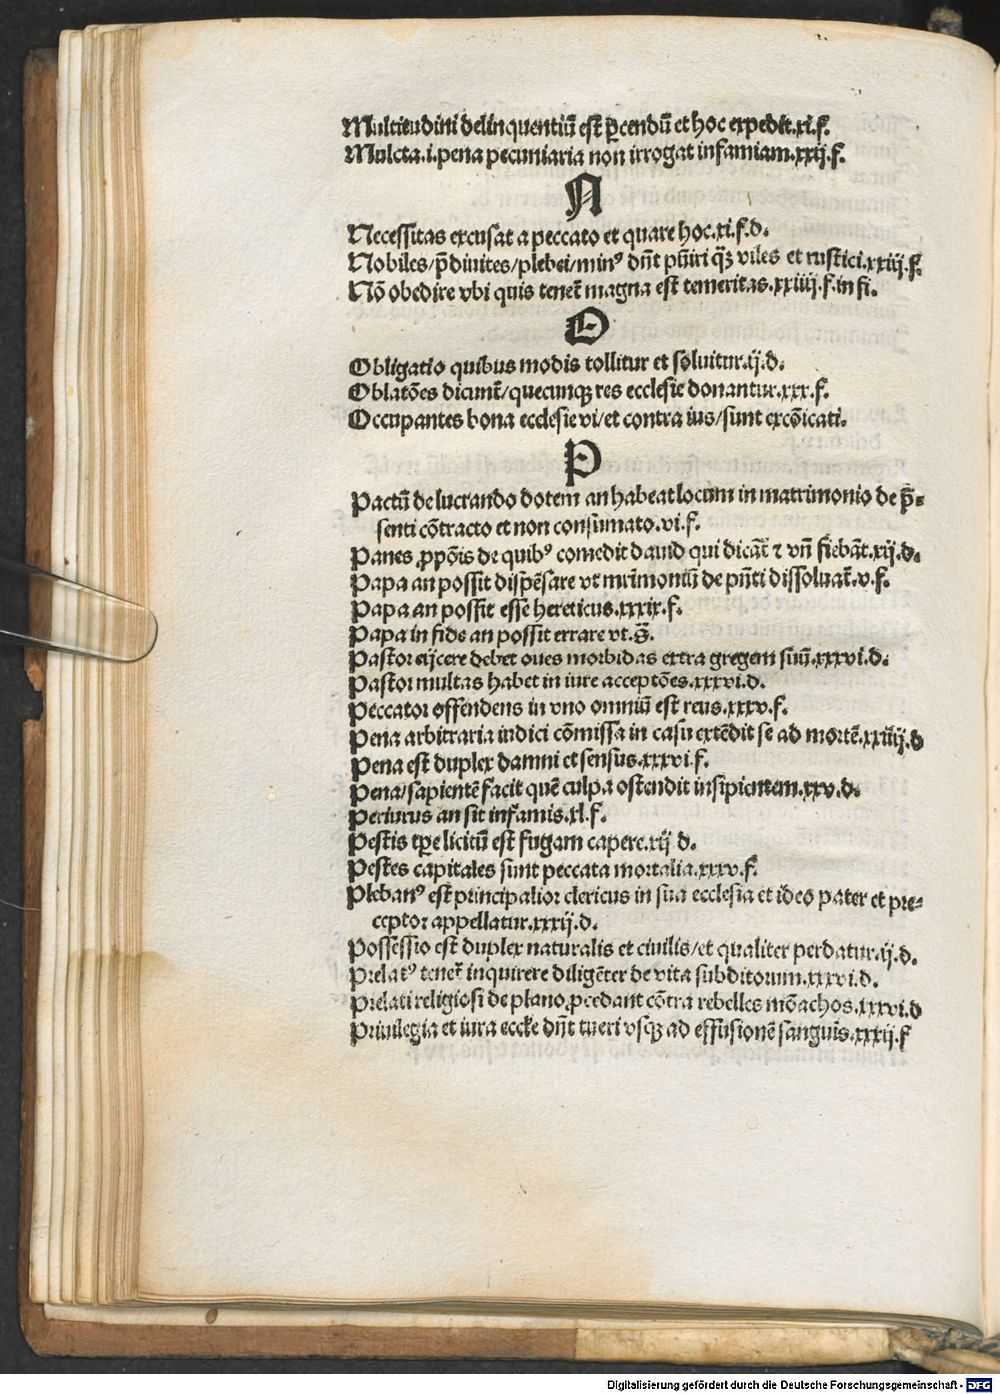 Multitudini delinquentiū est ꝑcendū et hoc expedit.xi.f.
Mulcta.i.pena pecuniaria non irrogat infamiam.xxij.f.
N
Necessitas excusat a peccato et quare hoc.xi.f.d.
Nobiles/p̄diuites/plebei/minꝰ dn̄t pn̄iri qꝫ viles et rustici.xxiij.f.
Nō obedire vbi quis tenet̄ magna est temeritas.xxiiij.f.in fi.
O
Obligatio quibus modis tollitur et soluitur.ij.d.
Oblatōes dicunt̄/quecunqꝫ res ecclesie donantur.xxx.f.
Occupantes bona ecclesie vi/et contra ius/sunt excōicati.
P
Pactū de lucrando dotem an habeat locum in matrimonio de p̄-
senti cōtracto et non consumato.vi.f.
Panes ꝓpōis de quibꝰ comedit dauid qui dicāt̄ ⁊ vn̄ fiebāt.xij.d.
Papa an possit dispēsare vt mr̄imoniū de pn̄ti dissoluat̄.v.f.
Papa an possit esse hereticus.xxxix.f.
Papa in fide an possit errare vt.s̄.
Pastor eijcere debet oues morbidas extra gregem suū.xxxvi.d.
Pastor multas habet in iure acceptōes.xxxvi.d.
Peccator offendens in vno omniū est reus.xxxv.f.
Pena arbitraria iudici cōmissa in casu extēdit se ad mortē.xxiiij.d
Pena est duplex damni et sensus.xxxvi.f.
Pena/sapientē facit quē culpa ostendit insipientem.xxv.d.
Periurus an sit infamis.xl.f.
Pestis tꝑe licitū est fugam capere.xij d.
Pestes capitales sunt peccata mortalia.xxxv.f.
Plebanꝰ est principalior clericus in sua ecclesia et ideo pater et pre-
ceptor appellatur.xxxij.d.
Possessio est duplex naturalis et ciuilis/et qualiter perdatur.ij.d.
Prelatꝰ tenet̄ inquirere diligēter de vita subditorum.xxxvi.d.
Prelati religiosi de plano ꝓcedant cōtra rebelles mōachos.xxxvi.d
Priuilegia et iura eccłie dn̄t tueri vsqꝫ ad effusionē sanguīs.xxxij.f
Digitalisierung gefördert durch die Deutsche Forschungsgemeinschaft - DFG